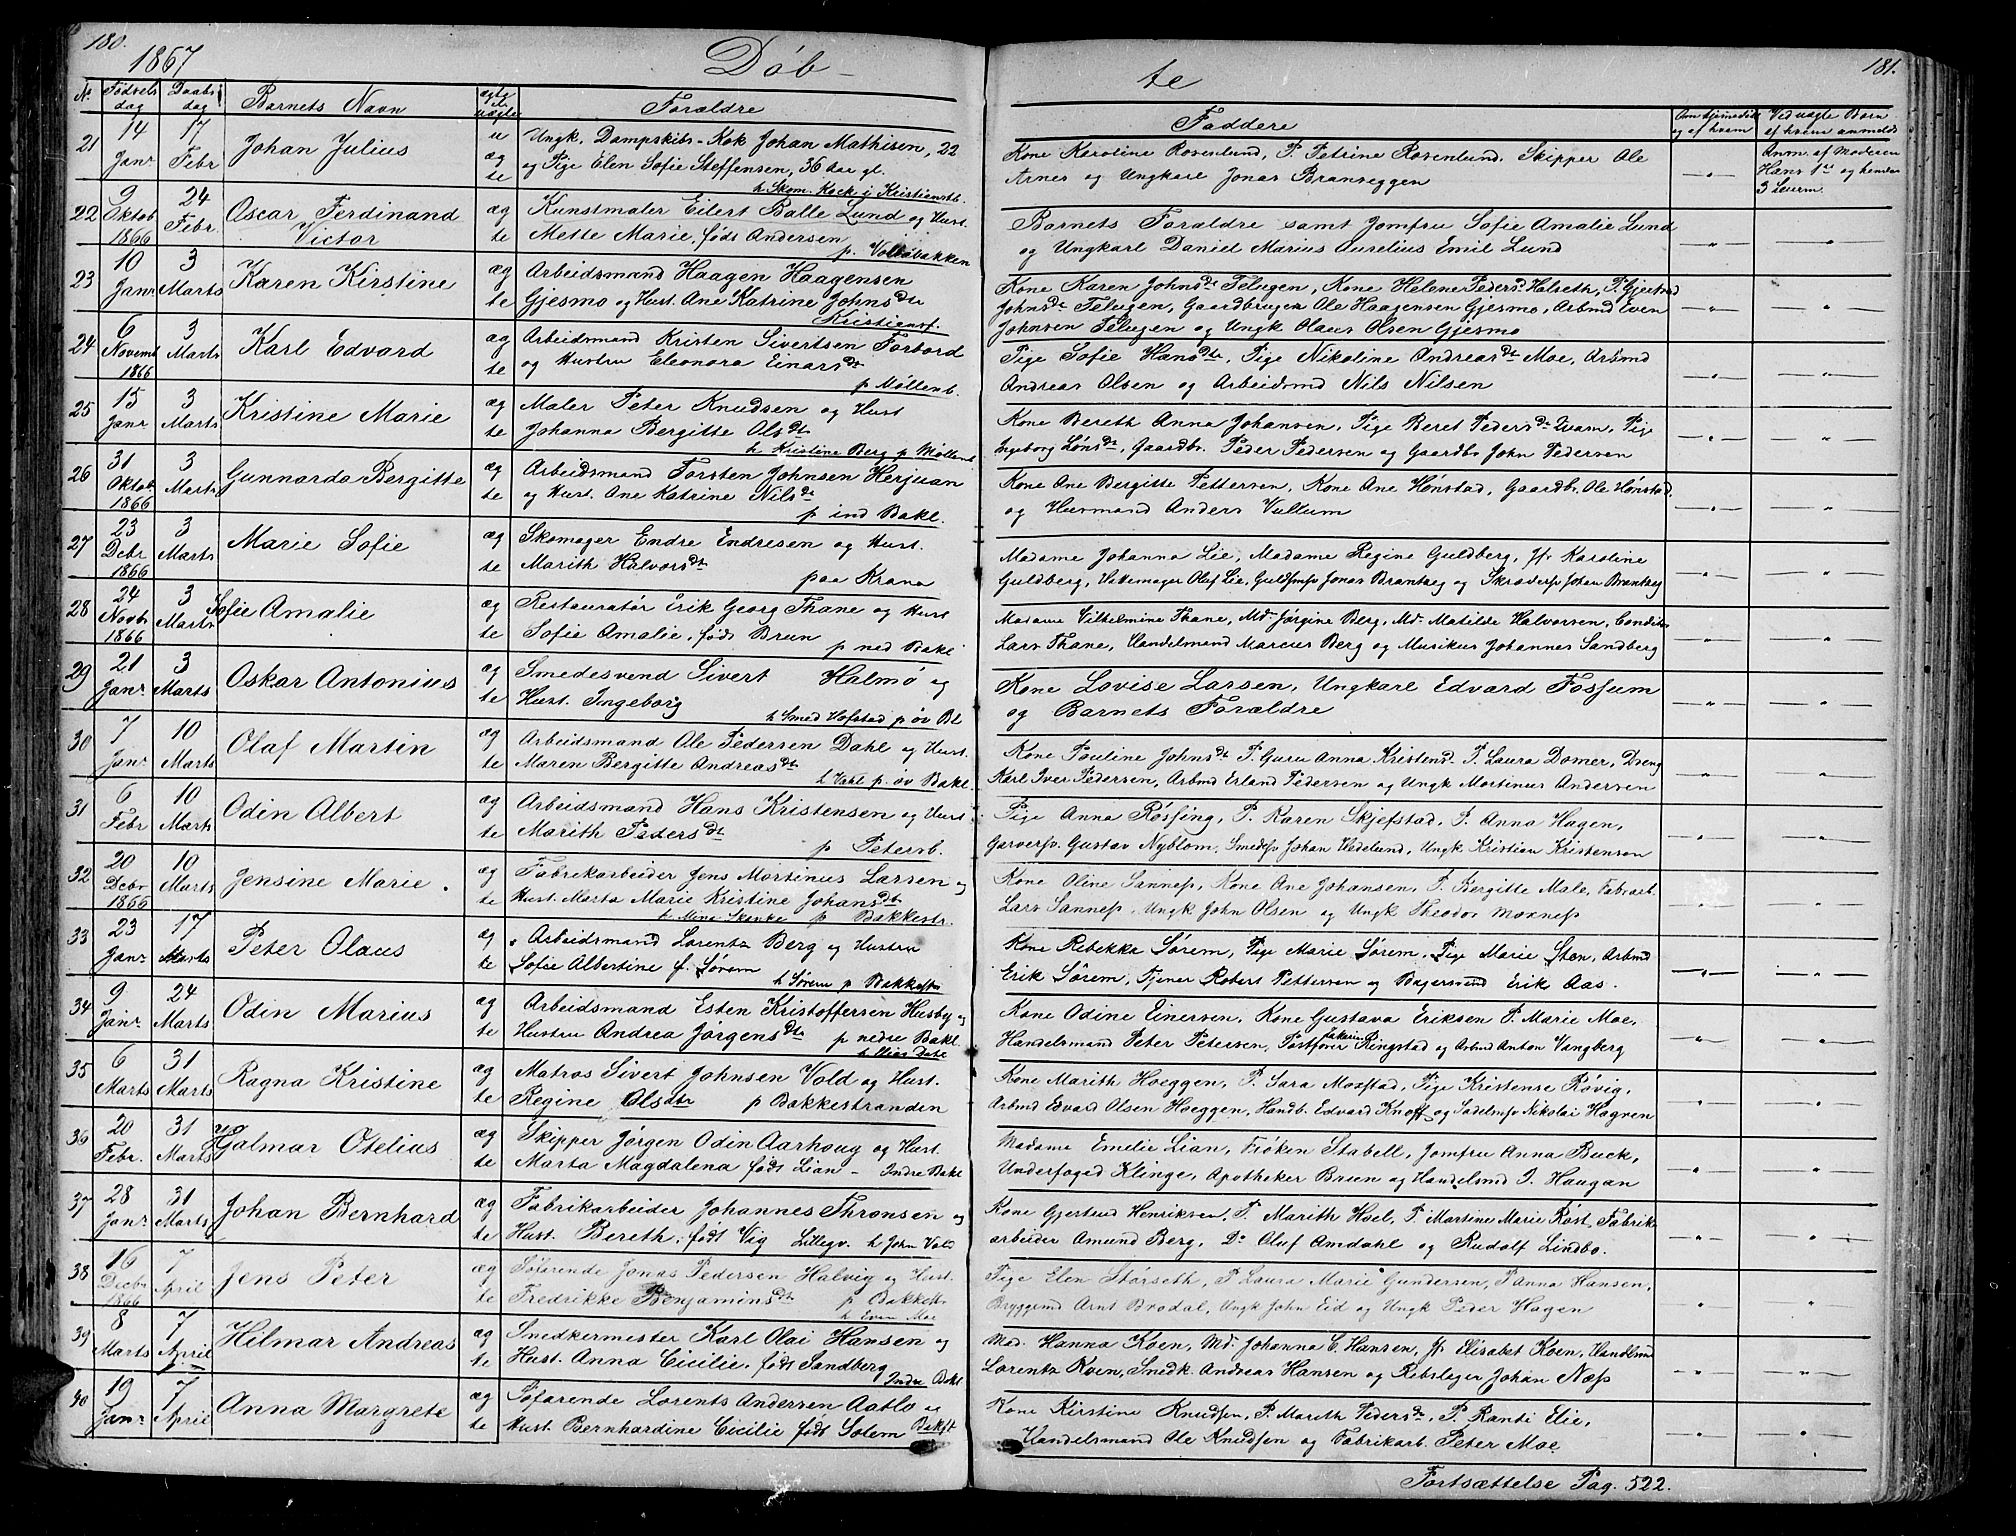 180.
1867
Döb-
No
Fødsels dag
Daabs dag
Barnets Navn
ægte el. uægte
Forældre
21
14 Janr
17 Febr
Johan Julius
uægte
Ungk. Dampskibs-Kok Johan Mathisen, 22
og Pige Elen Sofie Steffensen, 36 Aar gl.
h Skom. Kock i Kristiansb.
22
9 Oktob 1866
24 Febr.
Oscar Ferdinand
Victor
ægte
Kunstmaler Eilert Balle Lund og Hust.
Mette Marie, født Andersen
p. Voldsbakken
23
10 Janr
3 Marts
Karen Kirstine
ægte
Arbeidsmand Haagen Haagensen
Gjesmo og Hust. Ane Katrine Johnsdtr
Kristiansf.
24
6 Novemb 1866
3 Marts
Karl Edvard
ægte
Arbeidsmand Kristen Sivertsen Forbord
og Hustru Eleonora Einarsdt
p Møllenb.
25
15 Janr
3 Marts
Kristine Marie
ægte
Maler Peter Knudsen og Hust
Johanna Bergitte Olsdtr
h Kristine Berg p Møllenb
26
31 Oktob 1866
3 Marts
Gunnarda Bergitte
ægte
Arbeidsmand Torsten Johnsen Herjuan
og Hust. Ane Katrine Nilsdt
p ind Bakl.
27
23 Decbr 1866
3 Marts
Marie Sofie
ægte
Skomager Endre Endresen og Hust.
Marith Halvorsdt
paa Krana
28
24 Novbr 1866
3 Marts
Sofie Amalie
ægte
Restauratør Erik Georg Thane og Hust
Sofie Amalie, født Brun
p ned Bakl
29
21 Janr
3 Marts
Oskar Antonius
ægte
Smedesvend Sivert Halmø og
Hust. Ingeborg
h Smed Hofstad p øv Bl
30
7 Janr
10 Marts
Olaf Martin
ægte
Arbeidsmand Ole Pedersen Dahl og Hust.
Maren Bergitte Andreasdt
h Vahl p. øv Bakl.
31
6 Febr
10 Marts
Odin Albert
ægte
Arbeidsmand Hans Kristensen og Hust
Marith Pedersdt
p Petersb.
32
20 Decbr 1866
10 Marts
Jensine Marie.
ægte
Fabrikarbeider Jens Martinus Larsen og
Hust. Marta Marie Kristine Johansdt
h Mina Skanke p Bakkestr.
33
23 Janr
17 Marts
Peter Olaus
ægte
Arbeidsmand Lorentz Berg og Hustru
Sofie Albertine f. Sørem
h Sørem p Bakkestr
34
9 Janr
24 Marts
Odin Marius
ægte
Arbeidsmand Esten Kristoffersen Husby og
Hustru Andrea Jørgensdt p nedre Bakl
35
6 Marts
31 Marts
Ragna Kristine
ægte
Matros Sivert Johnsen Vold og Hust.
Regine Olsdtr p Bakkestranden
36
20 Febr.
31 Marts
Hjalmar Otelius
ægte
Skipper Jørgen Odin Aarhoug og Hust.
Marta Magdalena født Lian - Indre Bakl
37
28 Janr
31 Marts
Johan Bernhard
ægte
Fabrikarbeider Johannes Thronsen og
Hust. Bereth, født Vig Lillegv. h John Vold
38
16 Decbr 1866
7 April
Jens Peter
ægte
Søfarende Jonas Pedersen Halvig og Hust.
Fredrikke Benjaminsdt p Bakkestr
h Even Moe
39
8 Marts
7 April
Hilmar Andreas
ægte
Snedkermester Karl Olai Hansen og
Hust. Anna Cicilie, født Sandberg
Indre Bakl
40
19 Janr
7 April
Anna Margrete
ægte
Søfarende Lorents Andersen Aatlo og
Hust. Bernhardine Cicilie født Solem Bakstr
181.
te
Faddere
Om hjemmedøbt og af hvem
Ved uægte Børn af hvem anmeldt
Kone Karoline Rosenlund, P. Petrine Rosenlund, Skipper Ole
Arnes og Ungkarl Jonas Branseggen
Anm. af Moderen
Hans 1ste og hendes
3 Leierm.
Barnets Forældre samt Jomfru Sofie Amalie Lund
og Ungkarl Daniel Marius Aurelius Emil Lund
Kone Karen Johnsdt Telugen, Kone Helene Pedersd. Halseth, P. Gjertrud
Johnsdt Telugen, Gaardbruger Ole Haagensen Gjesmo, Arbmd Even
Johnsen Telugen og Ungk Olaus Olsen Gjesmo
Pige Sofie Hansdtr, Pige Nikoline Andreasdt Moe, Arbmd
Andreas Olsen og Arbeidsmd Nils Nilsen
Kone Bereth Anna Johansen, Pige Beret Pedersdt Kvam, Pige
Ingeborg Lønsdt, Gaardbr. Peder Pedersen og Gaardbr John Pedersen
Kone Ane Bergitte Pettersen, Kone Ane Hønstad, Gaardbr. Ole Hønstad
og Husmand Anders Vullum
Madame Johanna Lie, Madame Regine Guldberg, Jf. Karoline
Guldberg, Vekemager Oluf Lie, Guldsmsv Jonas Brantzeg og Skrædersv Johan Brantzeg
Madame Vilhelmine Thane, Md. Jørgine Berg, Md. Matilde Halvorsen, Conditor
Lars Thane, Handelsmand Marcus Berg og Musikus Johannes Sandberg
Kone Lovise Larsen, Ungkarl Edvard Fossum
og Barnets Forældre
Kone Pauline Johnsdt P. Guru Anna Kristensd. P. Laura Domer, Dreng
Karl Iver Pedersen, Arbmd Erland Pedersen og Ungk Martinus Andersen
Pige Anna Røsfing, P. Karen Skjefstad, P. Anna Hagen,
Garversv. Gustav Nyblom, Smedesv Johan Hedelund, Ungk Kristian Kristensen
Kone Oline Sanness, Kone Ane Johansen, P. Bergitte Male, Fabrarb.
Lars Sanness, Ungk John Olsen og Ungk Theodor Moxness
Kone Rebekka Sørem, Pige Marie Sørem, Pige Marie Sten, Arbmd
Erik Sørem, Tjener Robert Pettersen og Bagersvend Erik Aas.
Kone Odine Einersen, Kone Gustava Eriksen P. Marie Moe,
Handelsmand Peter Petersen, Postfører Ringstad og Arbmd Anton Vangberg
Kone Marith Hoeggen, P. Sara Moxstad, Pige Kristense Røvig,
Arbmd Edvard Olsen Hoeggen, Handb. Edvard Knoff og Sadelmsv Nikolai Hagnen
Madame Emelie Lian, Frøken Stabell, Jomfru Anna Buck,
Underfoged Klinge, Apotheker Brun og Handelsmd I. Haugan
Kone Gjertrud Henriksen, P. Marith Hoel, P. Martine Marie Røst, Fabrik-
arbeider Amund Berg, Do Oluf Amdahl og Rudolf Lindbo.
Pige Elen Størseth, P. Laura Marie Gundersen, P Anna Hansen,
Bryggemd Arnt Brodal, Ungk John Eid og Ungk Peder Hagen
Mad. Hanna Koen, Md. Johanna C. Hansen, Jf Elisabet Koen, Handlsmd
Lorentz Koen, Smedk. Andreas Hansen og Rebslager Johan Næss
Kone Kirstine Knudsen, P. Marith Pedersdt, P. Ranti Elie,
Handelsmand Ole Knudsen og Fabrikarb. Peter Moe
Fortsættelse Pag. 522.